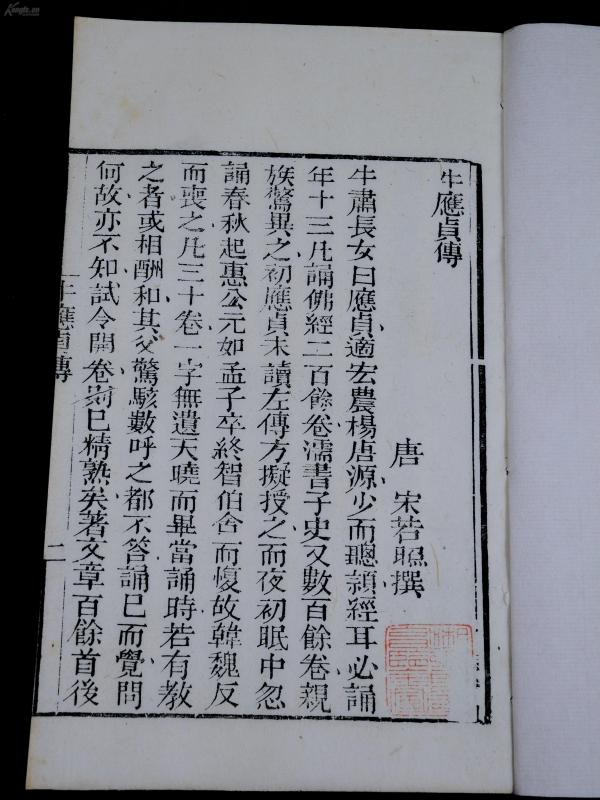 牛應貞傳
唐 宋若照撰
牛肅長女曰應貞適宏農楊唐源少而聰頴經耳必誦
年十三凡誦佛經二百餘卷濡書子史又數百餘卷親
族驚異之初應貞未讀左傳方擬授之而夜初眠中忽
誦春秋起惠公元妃孟子卒終智伯貪而愎故韓魏反
而喪之凡三十卷一字無遺天曉而畢當誦時若有教
之者或相酬和其父驚駭數呼之都不答誦已而覺問
何故亦不知試令開卷則已精熟矣著文章百餘首後
牛應貞傳
二